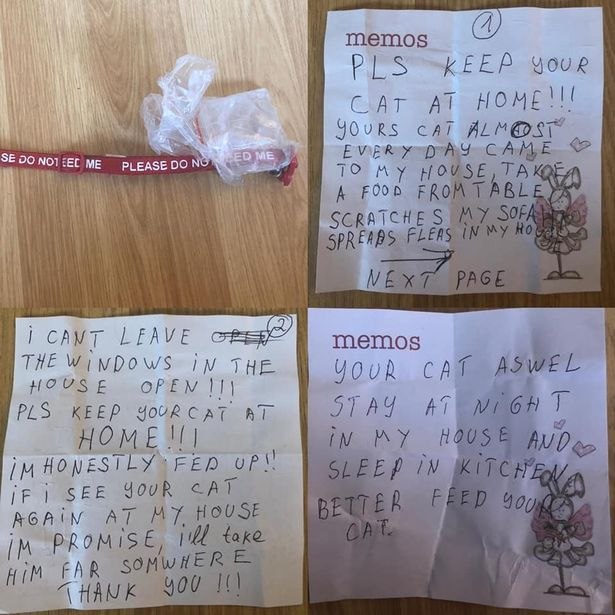 SE DO NOT EED ME PLEASE DO NO EED ME
1
memos
PLS KEEP YOUR
CAT AT HOME!!!
YOURS CAT ALMOST
EVERY DAY CAME
TO MY HOUSE, TAKE
A FOOD FROM TABLE
SCRATCHES MY SOFA
SPREADS FLEAS IN MY HOUSE
NEXT PAGE
2
i CANT LEAVE
THE WiNDOWS iN THE
HOUSE OPEN!!!
PLS KEEP YOUR CAT AT
HOME!!!
iM HONESTLY FED UP!!
iF i SEE YOUR CAT
AGAIN AT MY HOUSE
iM PROMISE, i'll take
HiM FAR SOMWHERE
THANK YOU!!!
memos
YOUR CAT ASWEL
STAY AT NiGHT
iN MY HOUSE AND
SLEEP iN KiTCHEN
BETTER FEED YOUR
CAT.